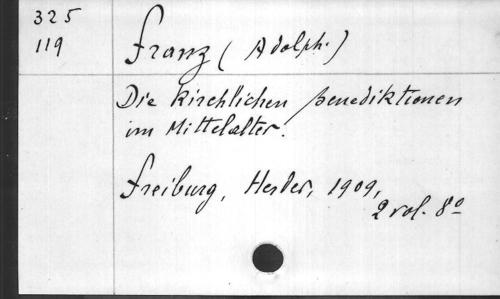 325
119
Franz (Adolph.)
Die kirchlichen Benediktionen
im Mittelalter.
Freiburg, Herder, 1909,
2 vol. 8º